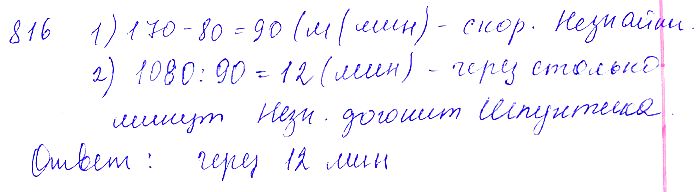 816 1) 170-80=90 (м/мин) - скор. Незнайки.
2) 1080:90=12 (мин) - через столько
минут Незн. догонит Шпунтика.
Ответ: через 12 мин